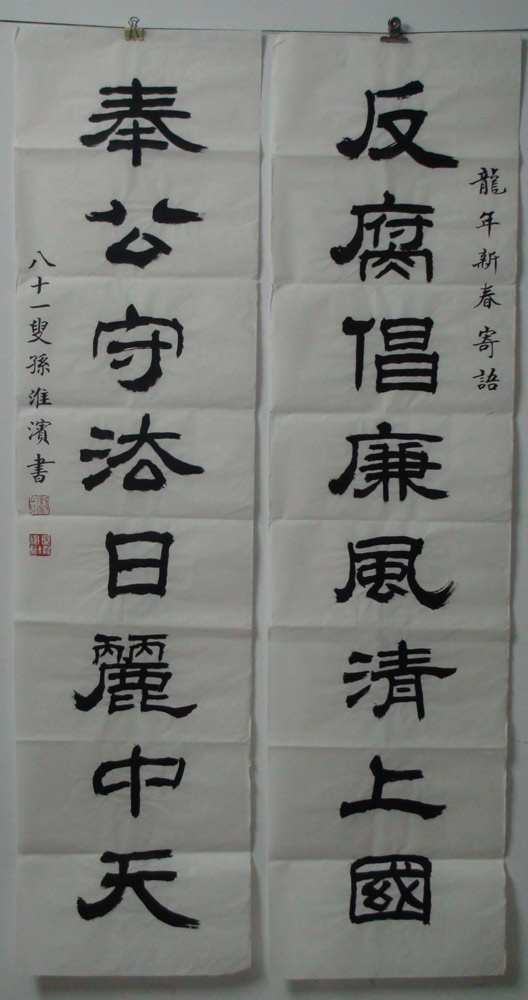 龍年新春寄語
反腐倡廉風清上國
奉公守法日麗中天
八十一叟孫淮濱書